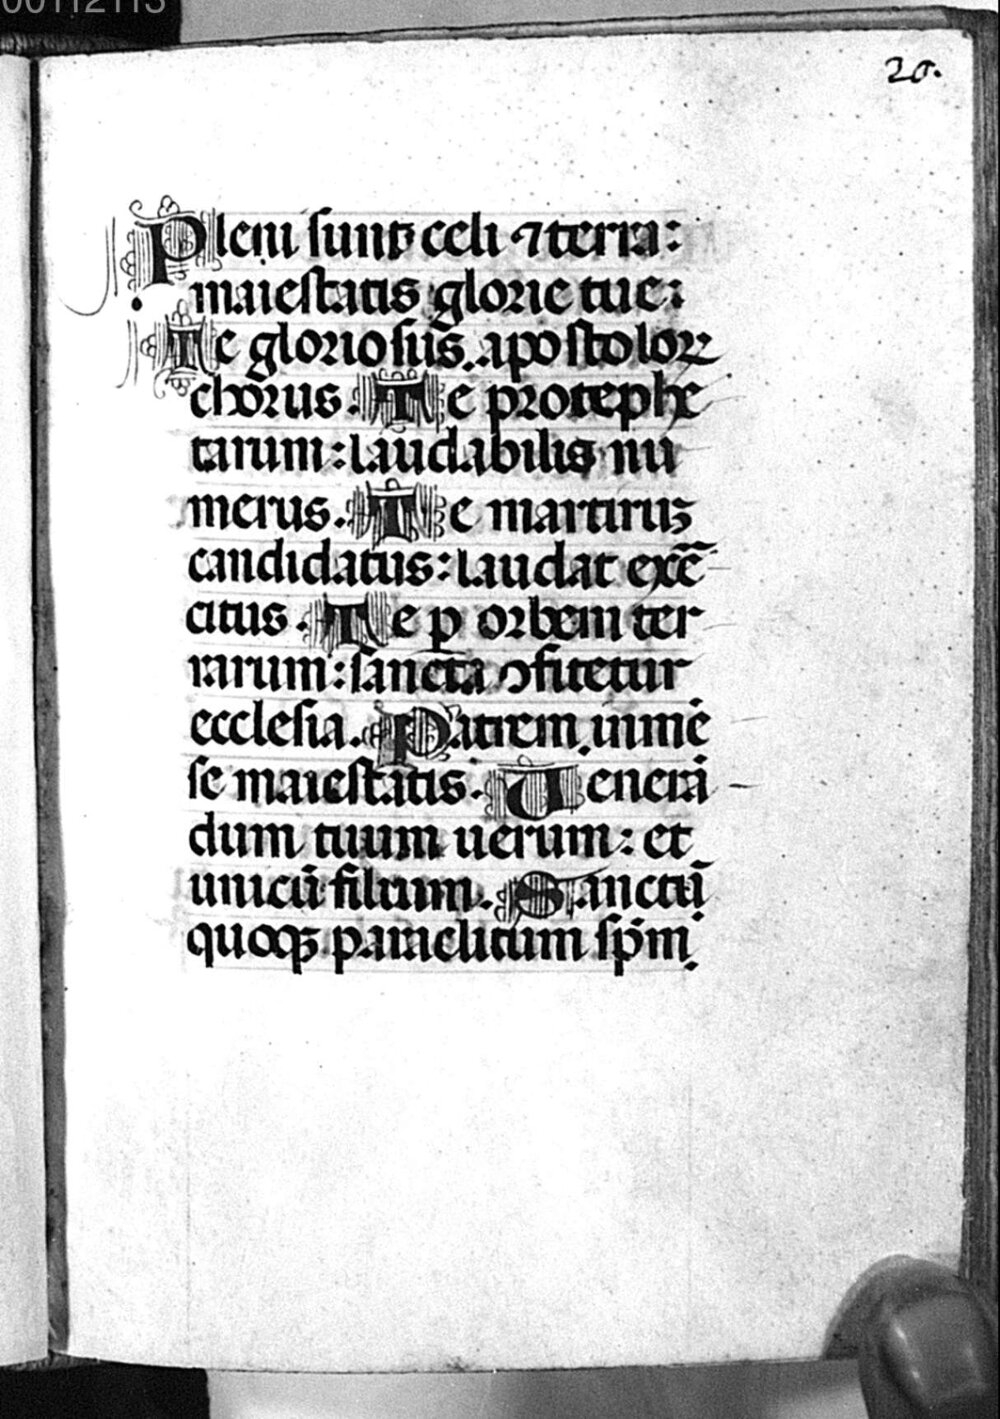 00112113
20.
Pleni sunt celi ⁊ terra:
maiestatis glorie tue:
Te gloriosus. apostoloꝝ
chorus. Te protephe
tarum: laudabilis nu
merus. Te martiruꝫ
candidatus: laudat exẽ
citus. Te ꝑ orbem ter
rarum: sancta ꝯfitetur
ecclesia. Patrem inmẽ
se maiestatis. Uenerã
dum tuum uerum: et
unicũ filium. Sanctũ
quoqꝫ paraclitum sp̃m.